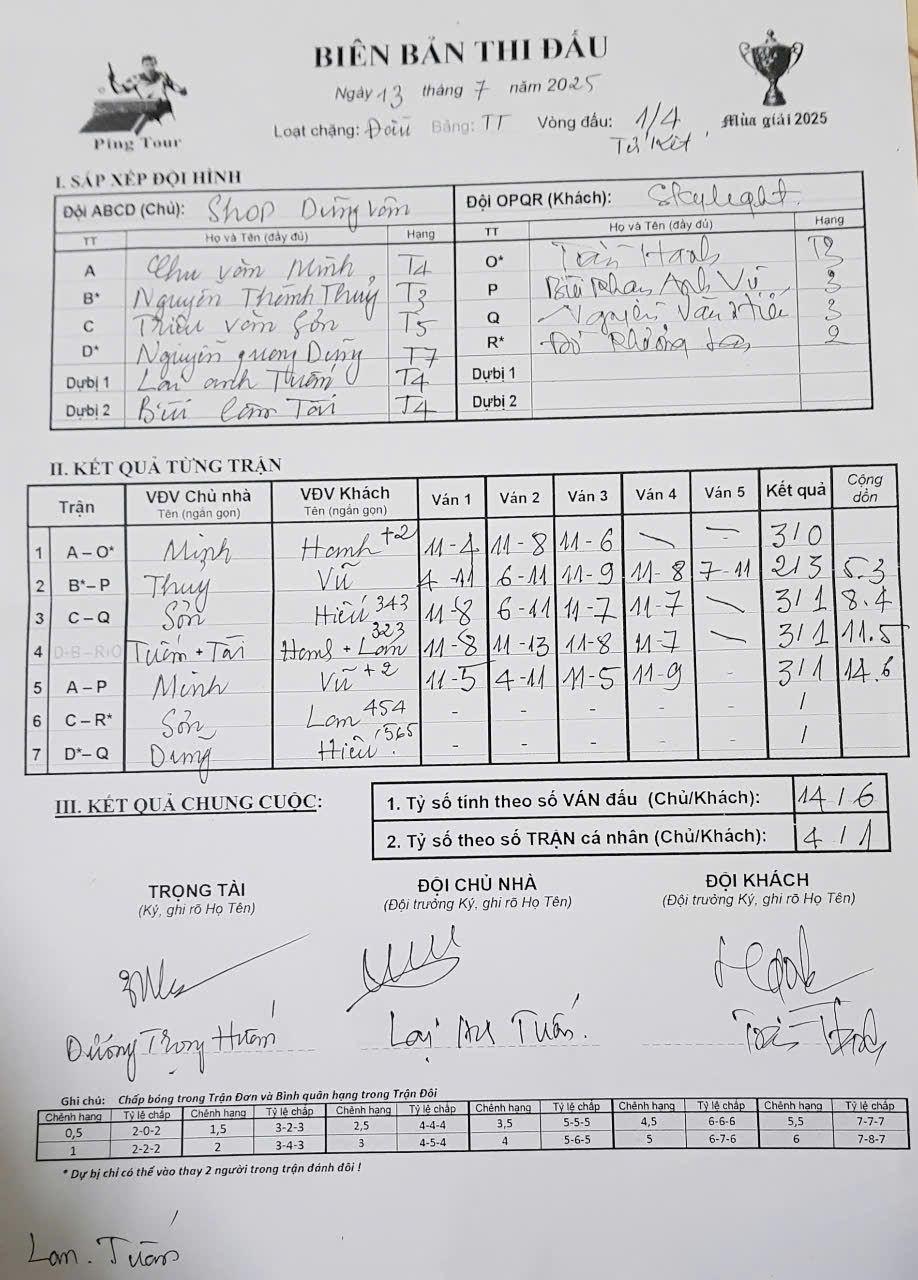 BIÊN BẢN THI ĐẤU
Ngày 13 tháng 7 năm 2025
Ping Tour
Loạt chặng: Đầu Bảng: TT Vòng đấu: 1/4
Tứ Kết
Mùa giải 2025
I. SẮP XẾP ĐỘI HÌNH
Đội ABCD (Chủ): Shop Dũng Vân Đội OPQR (Khách): Skylight
TT Họ và Tên (đầy đủ) Hạng TT Họ và Tên (đầy đủ) Hạng
A Chu Văn Minh T4 O* Trần Hạnh T3
B* Nguyễn Thành Thuỷ T3 P Bùi Phan Anh Vũ 3
C Triệu Văn Sơn T5 Q Nguyễn Văn Hiếu 3
D* Nguyễn Quang Dũng T7 R* Đỗ Phương Lan 2
Dự bị 1 Lại Anh Tuấn T4 Dự bị 1
Dự bị 2 Bùi Tài T4 Dự bị 2
II. KẾT QUẢ TỪNG TRẬN
Trận VĐV Chủ nhà Tên (ngắn gọn) VĐV Khách Tên (ngắn gọn) Ván 1 Ván 2 Ván 3 Ván 4 Ván 5 Kết quả Cộng dồn
1 A – O* Minh Hạnh +2 11-4 11-8 11-6 \ - 3/0
2 B* – P Thuỷ Vũ 4-11 6-11 11-9 11-8 7-11 2/3 5.3
3 C – Q Sơn Hiếu 343 11-8 6-11 11-7 11-7 \ 3/1 8.4
4 Tuấn + Tài Hạnh + Lan 323 11-8 11-13 11-8 11-7 \ 3/1 11.5
5 A – P Minh Vũ +2 11-5 4-11 11-5 11-9 3/1 14.6
6 C – R* Sơn Lan 454 - - - - - /
7 D* – Q Dũng Hiếu 565 - - - - - /
III. KẾT QUẢ CHUNG CUỘC:
1. Tỷ số tính theo số VÁN đấu (Chủ/Khách): 14/6
2. Tỷ số theo số TRẬN cá nhân (Chủ/Khách): 4/1
TRỌNG TÀI ĐỘI CHỦ NHÀ ĐỘI KHÁCH
(Ký, ghi rõ Họ Tên) (Đội trưởng Ký, ghi rõ Họ Tên) (Đội trưởng Ký, ghi rõ Họ Tên)
Dương Trọng Huấn Lại Tuấn Trần Hạnh
Ghi chú: Chấp bóng trong Trận Đơn và Bình quân hạng trong Trận Đôi
Chênh hạng Tỷ lệ chấp Chênh hạng Tỷ lệ chấp Chênh hạng Tỷ lệ chấp Chênh hạng Tỷ lệ chấp Chênh hạng Tỷ lệ chấp Chênh hạng Tỷ lệ chấp
0,5 2-0-2 1,5 3-2-3 2,5 4-4-4 3,5 5-5-5 4,5 6-6-6 5,5 7-7-7
1 2-2-2 2 3-4-3 3 4-5-4 4 5-6-5 5 6-7-6 6 7-8-7
* Dự bị chỉ có thể vào thay 2 người trong trận đánh đôi !
Lan. Tuấn